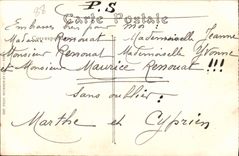 P.S
Carte Postale
Embrassez bien pour moi
Madame Renouat Mademoiselle Jeanne
Monsieur Renouat Mademoiselle Yvonne
et Monsieur Maurice Renouat !!!
Sans oublier :
Marthe et Cyprien